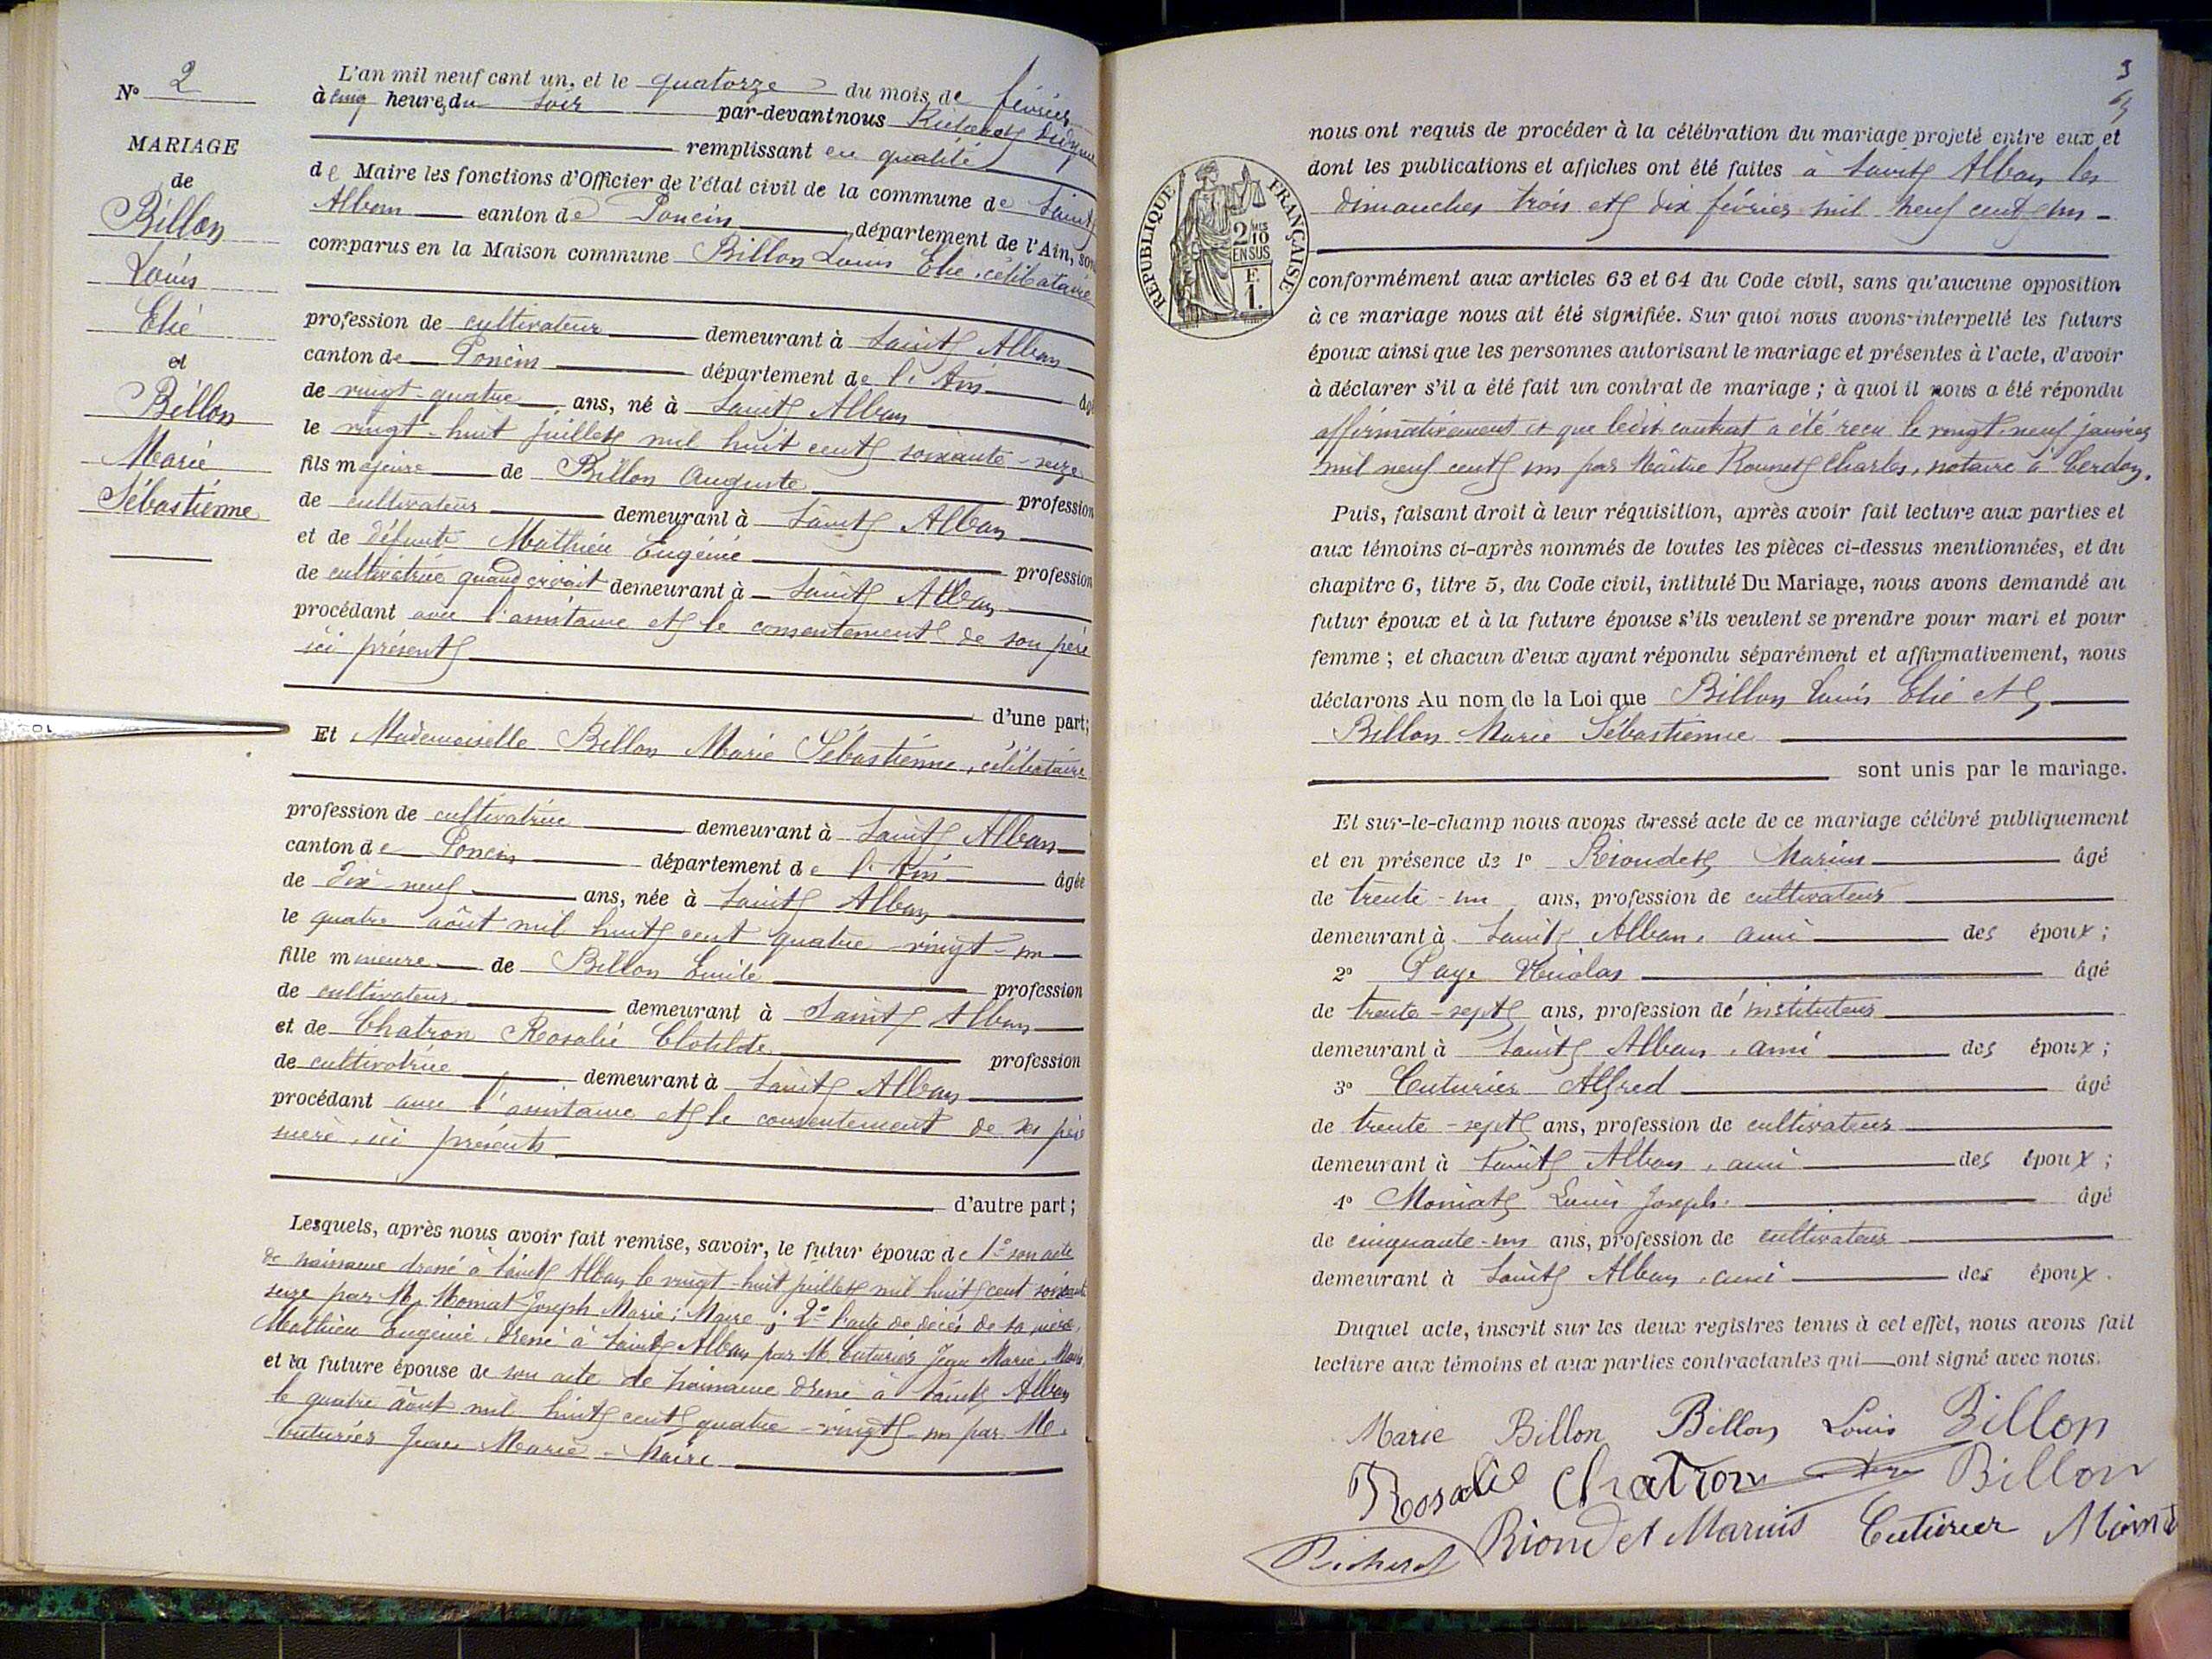 N° 2
MARIAGE
de
Billon
Louis
Elie
et
Billon
Marie
Sébastienne
L'an mil neuf cent un, et le quatorze du mois de février
à cinq heures du soir par-devant nous Richard
remplissant en qualité
de Maire les fonctions d'Officier de l'état civil de la commune de Saint
Alban canton de Poncin, département de l'Ain, sont
comparus en la Maison commune Billon Louis Elie, célibataire
profession de cultivateur demeurant à Saint Alban
canton de Poncin département de l'Ain âgé
de vingt-quatre ans, né à Saint Alban
le vingt-huit juillet mil huit cent soixante-seize
fils majeur de Billon Auguste profession
de cultivateur demeurant à Saint Alban
et de défunte Mathieu Eugénie profession
de cultivatrice quand vivait demeurant à Saint Alban
procédant avec l'assistance et le consentement de son père
ici présent
d'une part;
Et Mademoiselle Billon Marie Sébastienne, célibataire
profession de cultivatrice demeurant à Saint Alban
canton de Poncin département de l'Ain âgée
de dix-neuf ans, née à Saint Alban
le quatre août mil huit cent quatre-vingt-un
fille mineure de Billon Emile profession
de cultivateur demeurant à Saint Alban
et de Chatron Rosalie Clotilde profession
de cultivatrice demeurant à Saint Alban
procédant avec l'assistance et le consentement de ses père
mère, ici présents
d'autre part;
Lesquels, après nous avoir fait remise, savoir, le futur époux de 1° son acte
de naissance dressé à Saint Alban le vingt-huit juillet mil huit cent soixante
seize par M. Moniat Joseph Marie, Maire; 2° l'acte de décès de sa mère,
Mathieu Eugénie dressé à Saint Alban par M. Cuturier Jean Marie, Maire,
et la future épouse de son acte de naissance dressé à Saint Alban
le quatre août mil huit cent quatre-vingt-un par M.
Cuturier Jean Marie - Maire
3
RÉPUBLIQUE FRANÇAISE
2/10 MES
EN SUS
F.
1.
nous ont requis de procéder à la célébration du mariage projeté entre eux et
dont les publications et affiches ont été faites à Saint Alban les
dimanches trois et dix février mil neuf cent un
conformément aux articles 63 et 64 du Code civil, sans qu'aucune opposition
à ce mariage nous ait été signifiée. Sur quoi nous avons interpellé les futurs
époux ainsi que les personnes autorisant le mariage et présentes à l'acte, d'avoir
à déclarer s'il a été fait un contrat de mariage; à quoi il nous a été répondu
affirmativement et que ledit contrat a été reçu le vingt-neuf janvier
mil neuf cent un par Maître Rounet Charles, notaire à Cerdon.
Puis, faisant droit à leur réquisition, après avoir fait lecture aux parties et
aux témoins ci-après nommés de toutes les pièces ci-dessus mentionnées, et du
chapitre 6, titre 5, du Code civil, intitulé Du Mariage, nous avons demandé au
futur époux et à la future épouse s'ils veulent se prendre pour mari et pour
femme; et chacun d'eux ayant répondu séparément et affirmativement, nous
déclarons Au nom de la Loi que Billon Louis Elie et
Billon Marie Sébastienne
sont unis par le mariage.
Et sur-le-champ nous avons dressé acte de ce mariage célébré publiquement
et en présence de 1° Riondet Marius âgé
de trente-un ans, profession de cultivateur
demeurant à Saint Alban, ami des époux;
2° Page Nicolas âgé
de trente-sept ans, profession d'instituteur
demeurant à Saint Alban, ami des époux;
3° Cuturier Alfred âgé
de trente-sept ans, profession de cultivateur
demeurant à Saint Alban, ami des époux;
4° Moniat Louis Joseph âgé
de cinquante-un ans, profession de cultivateur
demeurant à Saint Alban, ami des époux.
Duquel acte, inscrit sur les deux registres tenus à cet effet, nous avons fait
lecture aux témoins et aux parties contractantes qui ont signé avec nous.
Marie Billon Billon Louis Billon
Rosalie Chatron Billon
Richard Riondet Marius Cuturier